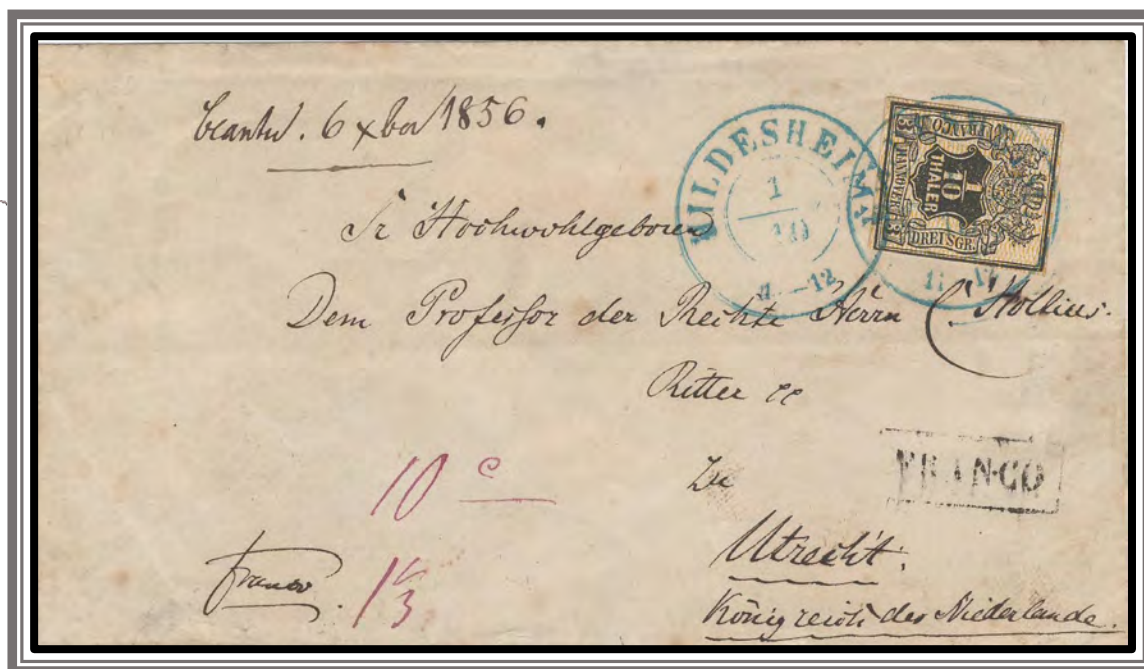 beantw. 6 xber 1856.
HILDESHEIM
1
10
11 - 12
FRANCO
HANNOVER
1
10
THALER
DREI SGR.
3
3
11 12
Sr Hochwohlgeboren
Dem Professor der Rechte Herrn
Ritter
Zu
FRANCO
10 c
Utrecht.
franco.
1 1/3
Königreich der Niederlande.